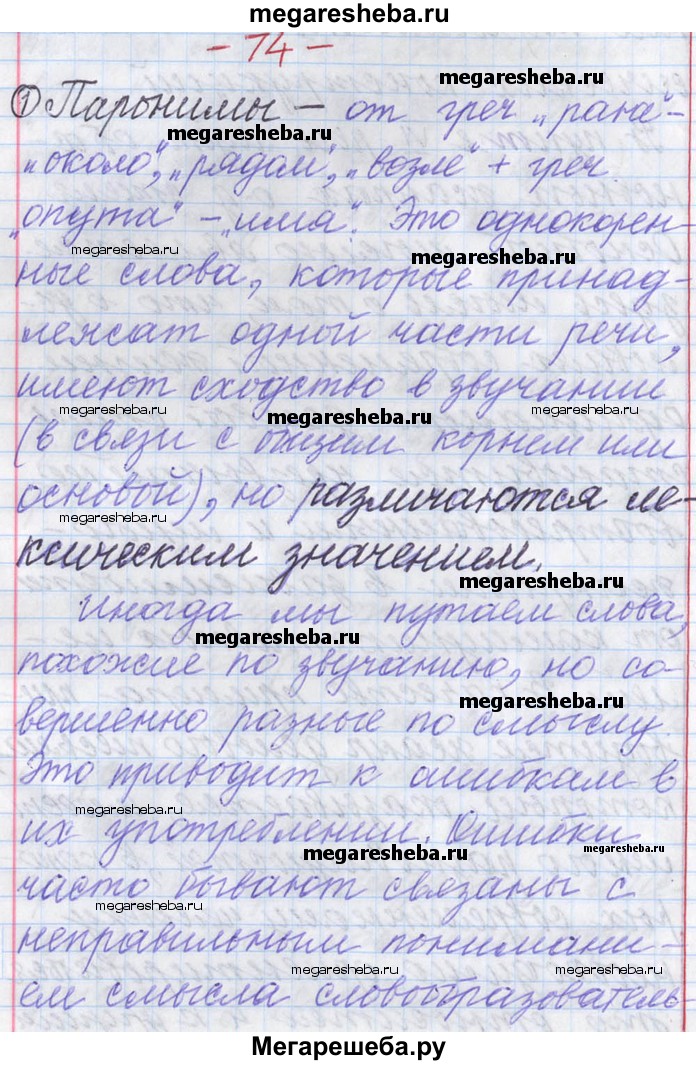 megaresheba.ru
- 74 -
megaresheba.ru
① Паронимы – от греч „para“ –
megaresheba.ru
„около“, „рядом“, „возле“ + греч.
„onyma“ – „имя“. Это однокорен-
megaresheba.ru megaresheba.ru
ные слова, которые принад-
лежат одной части речи,
имеют сходство в звучании
megaresheba.ru megaresheba.ru megaresheba.ru
(в связи с общим корнем или
основой), но различаются ле-
megaresheba.ru
ксическим значением.
megaresheba.ru
Иногда мы путаем слова,
megaresheba.ru
похожие по звучанию, но со-
megaresheba.ru
вершенно разные по смыслу.
Это приводит к ошибкам в
megaresheba.ru
их употреблении. Ошибки
megaresheba.ru megaresheba.ru
часто бывают связаны с
megaresheba.ru
неправильным понимани-
megaresheba.ru megaresheba.ru
ем смысла словообразователь-
Мегарешеба.ру